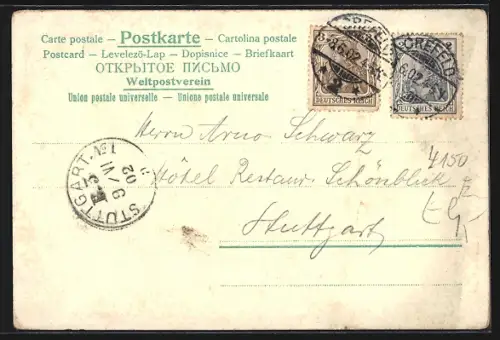 Carte postale – Postkarte – Cartolina postale
Postcard – Levelező-Lap – Dopisnice – Briefkaart
ОТКРЫТОЕ ПИСЬМО
Weltpostverein
Union postale universelle – Unione postale universale
CREFELD
6.02
DEUTSCHES REICH
CREFELD
6.02
DEUTSCHES REICH
Herrn Arno Schwarz
Hôtel Restaur. Schönblick
Stuttgart
4150
STUTTGART. No 1
9/VI
02